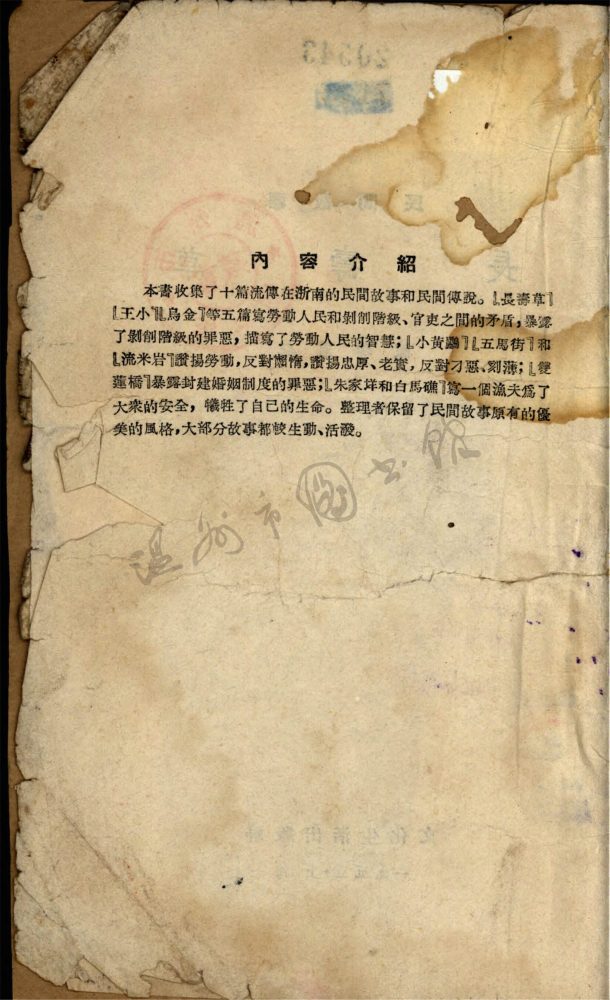 內容介紹
本書收集了十篇流傳在浙南的民間故事和民間傳說。「長壽草」
「王小」「烏金」等五篇寫勞動人民和剝削階級、官吏之間的矛盾,暴露
了剝削階級的罪惡,描寫了勞動人民的智慧;「小黃鷗」「五馬街」和
「流米岩」讚揚勞動,反對懶惰,讚揚忠厚、老實,反對刁惡、刻薄;「
蓮橋」暴露封建婚姻制度的罪惡;「朱家垟和白馬礁」寫一個漁夫爲了
大衆的安全,犧牲了自己的生命。整理者保留了民間故事原有的優
美的風格,大部分故事都較生動、活潑。
溫州市圖書館